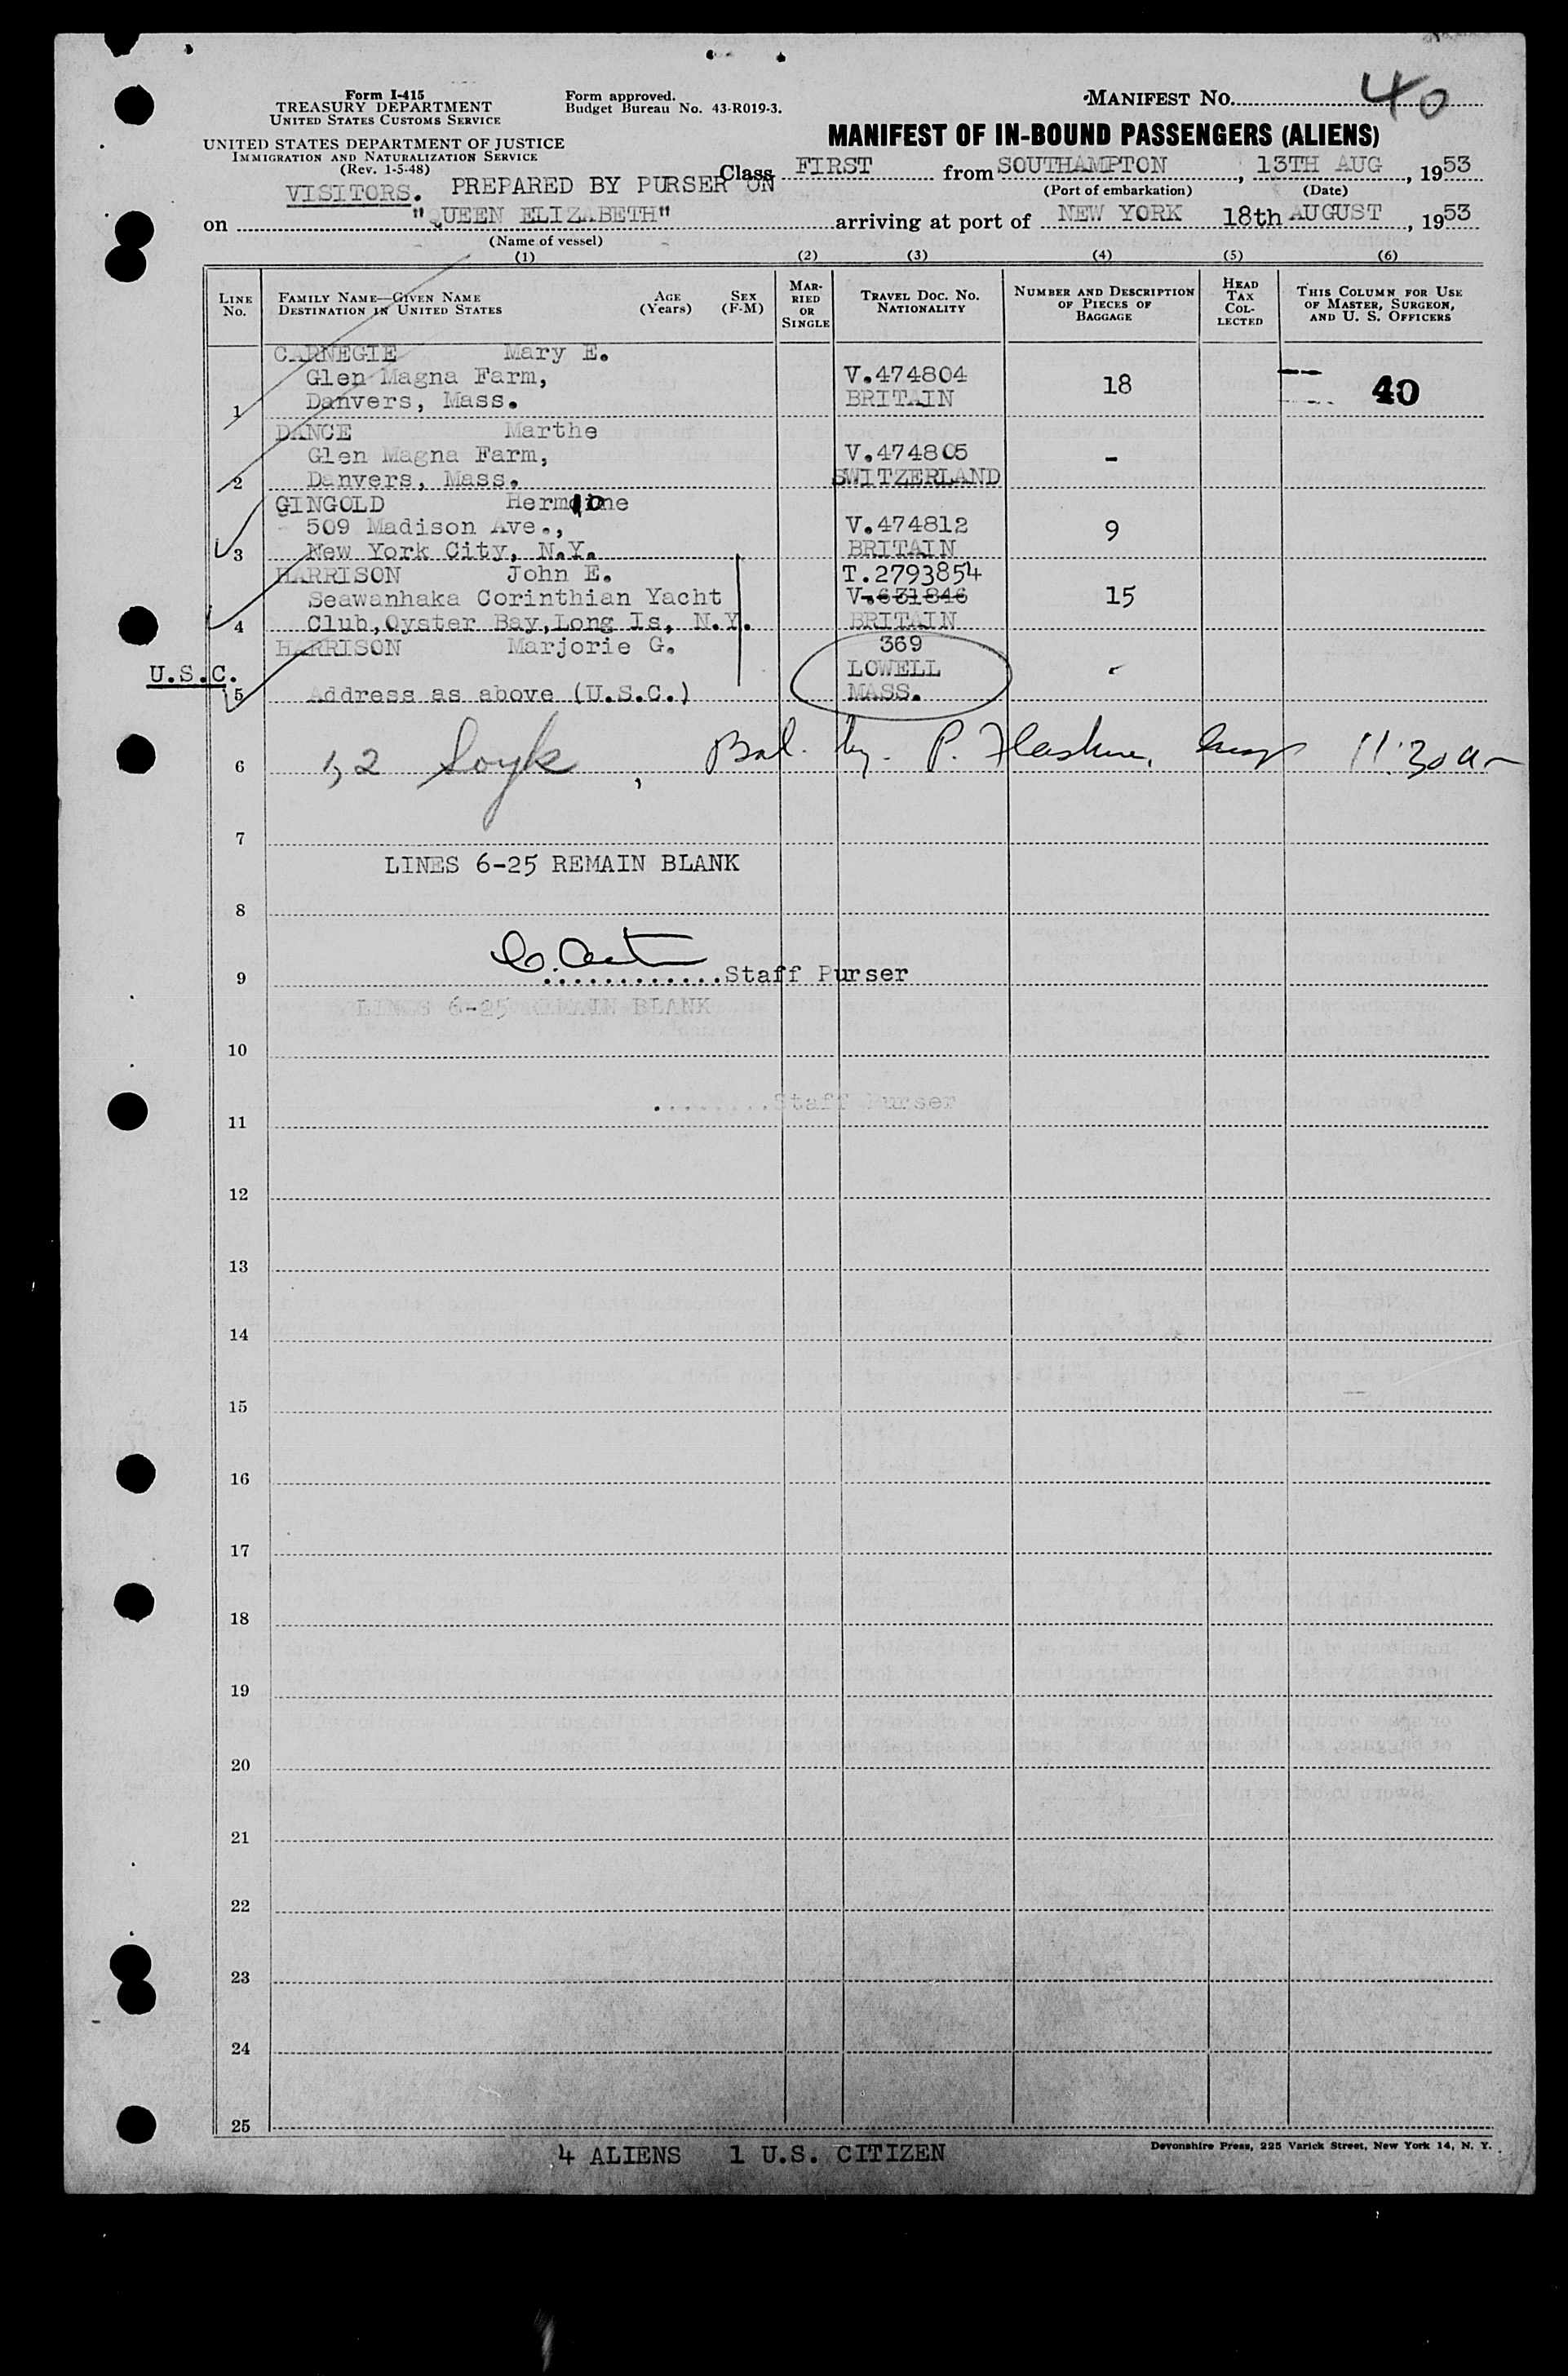 Form I-415
TREASURY DEPARTMENT
UNITED STATES CUSTOMS SERVICE
Form approved.
Budget Bureau No. 43-R019-3.
MANIFEST NO. 40
UNITED STATES DEPARTMENT OF JUSTICE
IMMIGRATION AND NATURALIZATION SERVICE
(Rev. 1-5-48)
MANIFEST OF IN-BOUND PASSENGERS (ALIENS)
VISITORS. PREPARED BY PURSER ON
Class FIRST from SOUTHAMPTON, 13TH AUG, 1953
(Port of embarkation) (Date)
on "QUEEN ELIZABETH" arriving at port of NEW YORK 18th AUGUST, 1953
(Name of vessel)
(1) (2) (3) (4) (5) (6)
LINE No.
FAMILY NAME—GIVEN NAME
DESTINATION IN UNITED STATES
AGE (Years)
SEX (F-M)
MARRIED OR SINGLE
TRAVEL DOC. NO.
NATIONALITY
NUMBER AND DESCRIPTION OF PIECES OF BAGGAGE
HEAD TAX COLLECTED
THIS COLUMN FOR USE OF MASTER, SURGEON, AND U. S. OFFICERS
CARNEGIE Mary E.
Glen Magna Farm, V.474804 18 40
1 Danvers, Mass. BRITAIN
DANCE Marthe
Glen Magna Farm, V.474805 -
2 Danvers, Mass. SWITZERLAND
GINGOLD Hermione
509 Madison Ave., V.474812 9
3 New York City, N.Y. BRITAIN
HARRISON John E. T.2793854
Seawanhaka Corinthian Yacht V.631846 15
4 Club,Oyster Bay,Long Is, N.Y. BRITAIN
HARRISON Marjorie G. 369
U.S.C. LOWELL
5 Address as above (U.S.C.) MASS.
6 1,2 , Bal. by P. 11:30 a
7
LINES 6-25 REMAIN BLANK
8
9 ............Staff Purser
LINES 6-25 REMAIN BLANK
10
........Staff Purser
11
12
13
14
15
16
17
18
19
20
21
22
23
24
25
4 ALIENS 1 U.S. CITIZEN
Devonshire Press, 225 Varick Street, New York 14, N. Y.